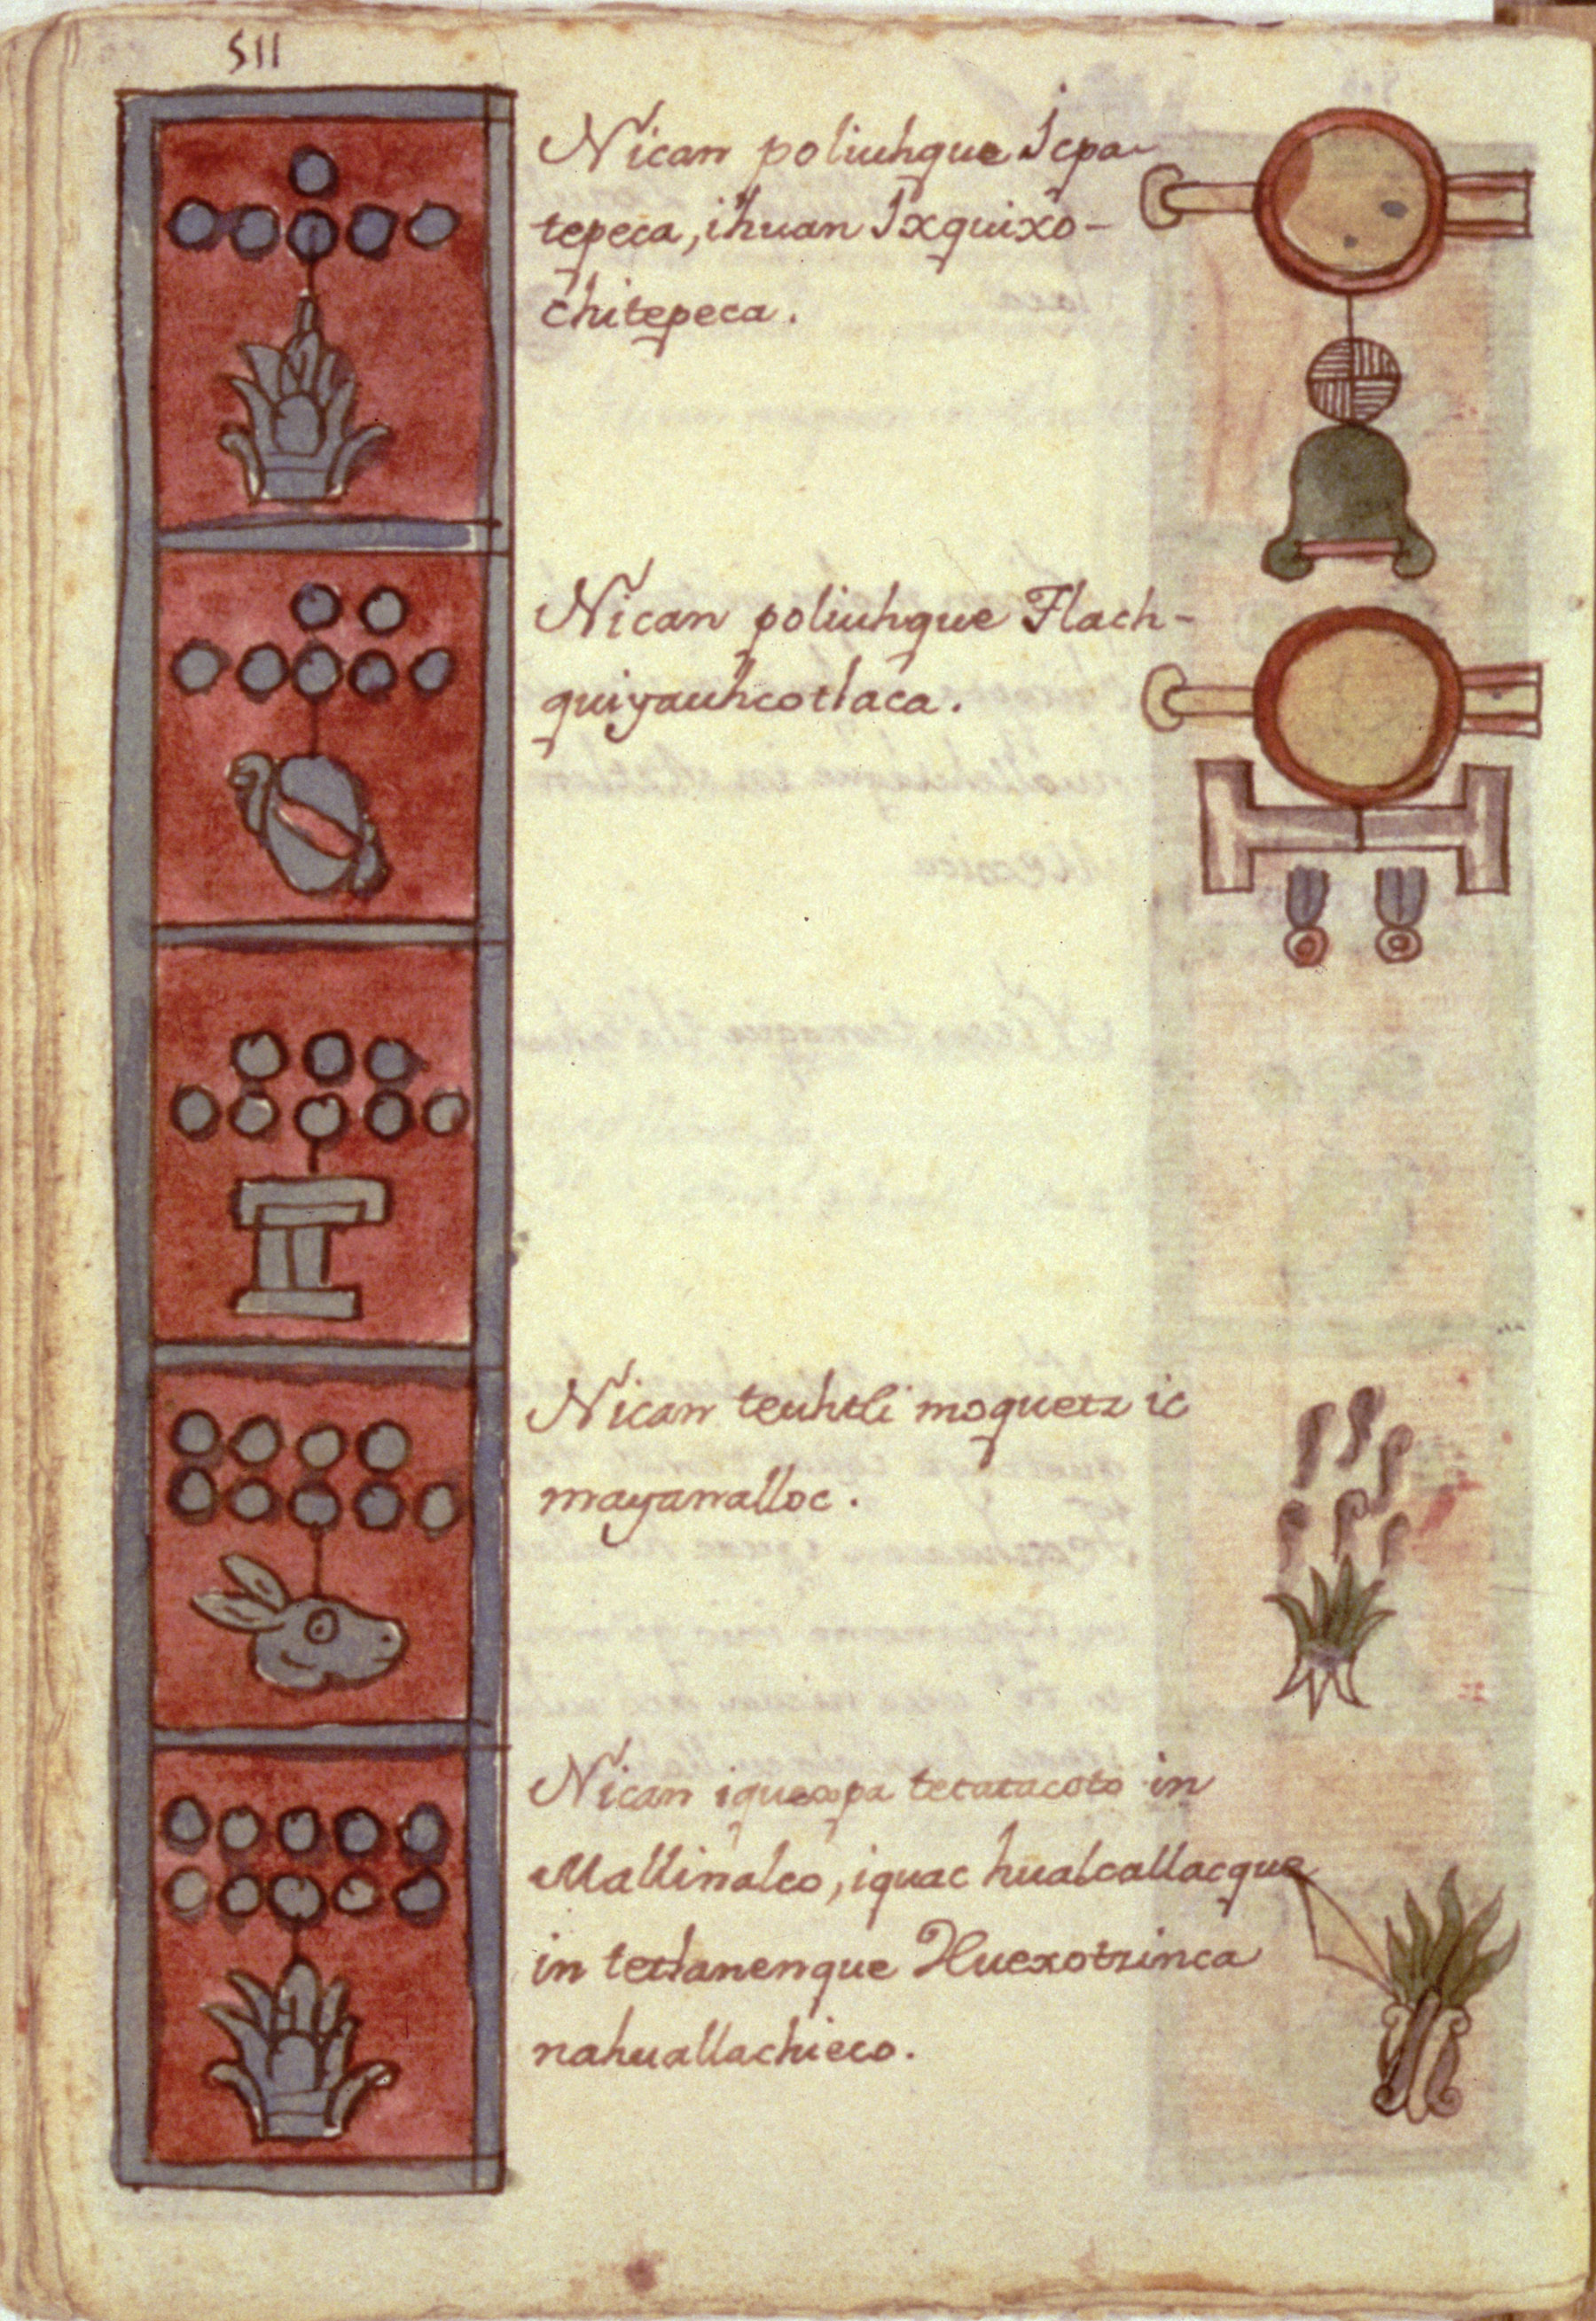 SII
Nican poliuhque Icpa-
tepeca, ihuan Ixquixo-
chitepeca.
Nican poliuhque Tlach-
quiyauhcotlaca.
Nican teuhtli moquetz ic
mayanalloc.
Nican iquexpa tetatacoto in
Mallinalco, iquac hualcallacque
in tetlanenque Huexotzinca
nahuallachieco.